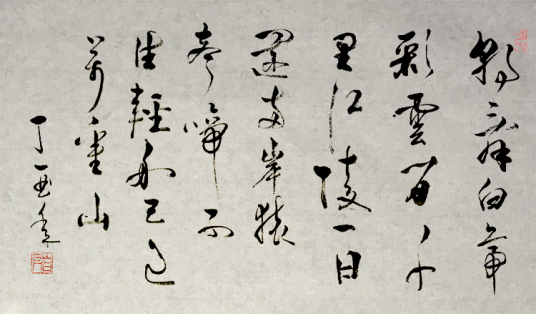 朝辭白帝
彩雲間千
里江陵一日
還兩岸猿
聲啼不
住輕舟已過
萬重山